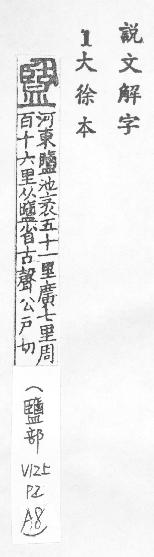 説文解字
1大徐本
盬
河東鹽池袤五十一里廣七里周
百十六里从鹽省古聲公戶切
(鹽部
V125
P2
A8)